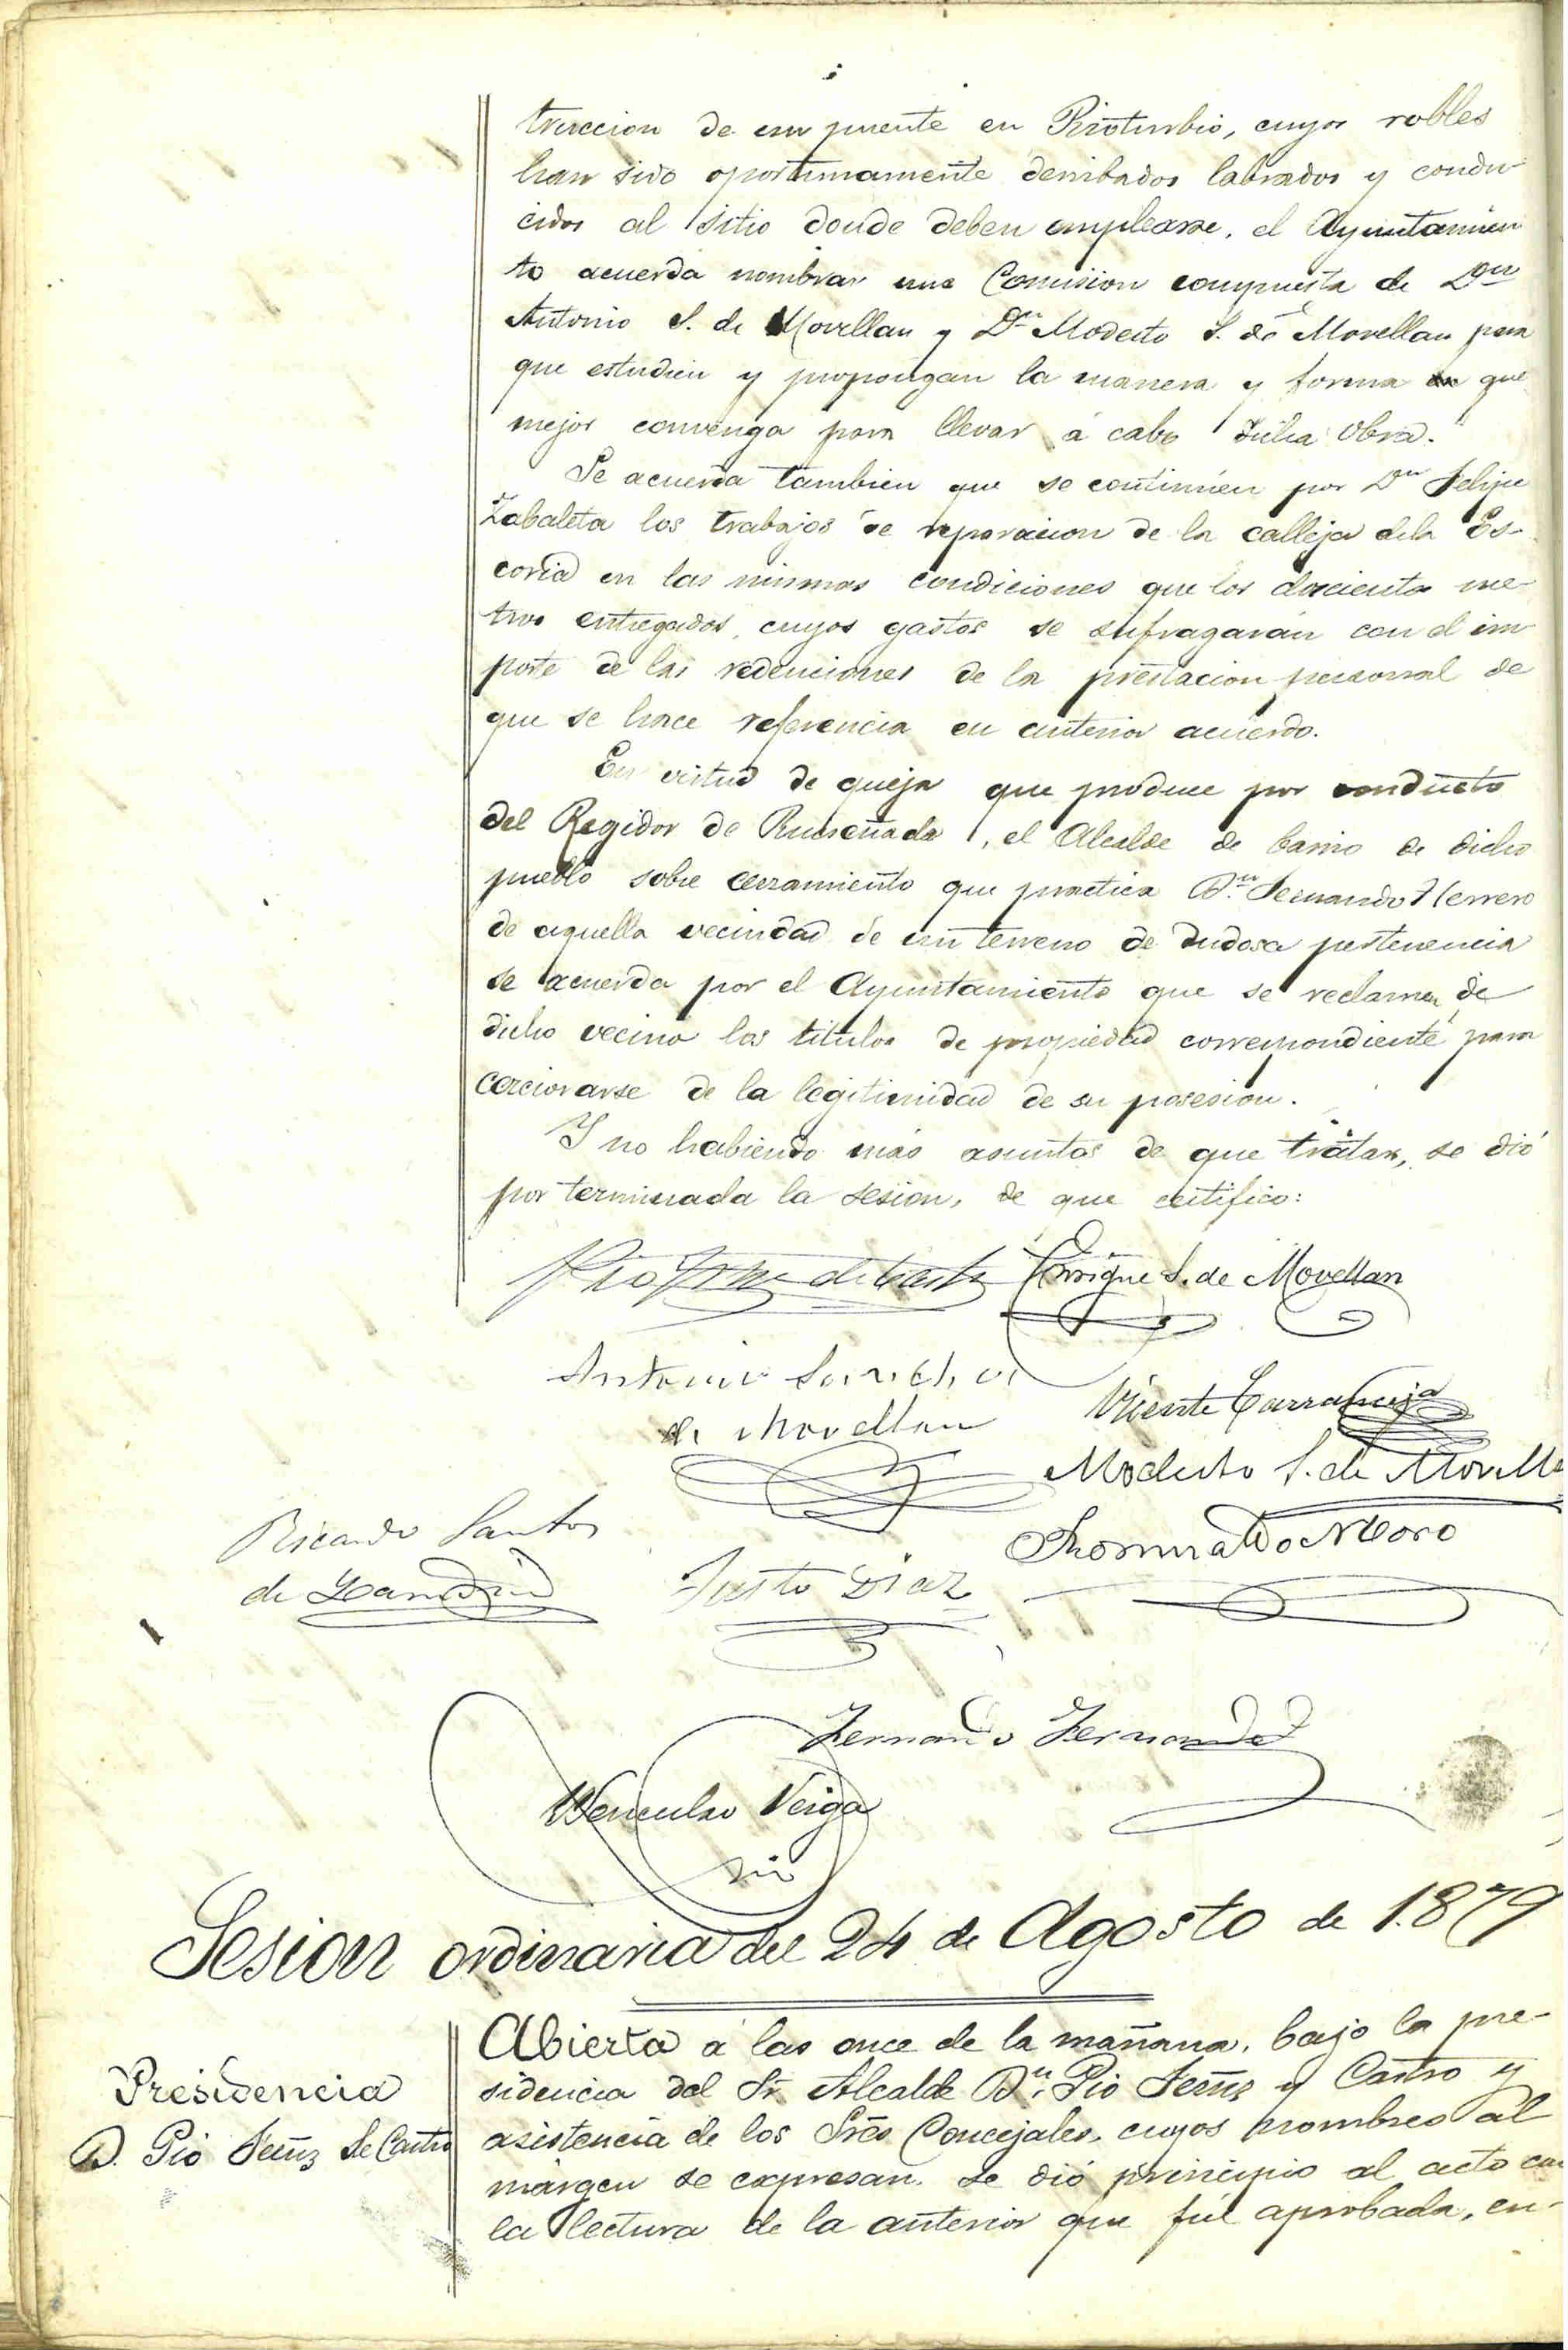 truccion de un puente en Rioturbio, cuyos robles
han sido oportunamente derribados labrados y condu-
cidos al sitio donde deben emplearse, el Ayuntamien
to acuerda nombrar una Comision compuesta de Dn
Antonio S. de Movellan y Dn Modesto S. de Movellan para
que estudien y propongan la manera y forma que
mejor convenga para llevar á cabo dicha obra.
Se acuerda tambien que se continúen por Dn Felipe
Zabaleta los trabajos de reparacion de la calleja dela Es-
coria en las mismas condiciones que los doscientos me-
tros entregados, cuyos gastos se sufragarán con el im
porte de las redenciones de la prestacion personal de
que se hace referencia en anterior acuerdo.
En virtud de queja que produce por conducto
del Regidor de Ruiseñada, el Alcalde de barrio de dicho
pueblo sobre cerramiento que practica Dn. Fernando Herrero
de aquella vecindad de un terreno de dudosa pertenencia
se acuerda por el Ayuntamiento que se reclamen de
dicho vecino los titulos de propiedad correspondiente para
cerciorarse de la legitimidad de su posesion.
Y no habiendo más asuntos de que tratar, se dió
por terminada la sesion, de que certifico:
Pio Frnz de Castro Enrique S. de Movellan
Antonio Sanchez
de Movellan
Vicente Carranceja
Modesto S. de Movella
Ricardo Santos
de
Justo Diaz
Romualdo Moro
Fernando Fernandez
Wenceslao Veiga
Srio
Sesion ordinaria del 24 de Agosto de 1.879
Presidencia
D. Pio Fernz de Castro
Abierta á las once de la mañana, bajo la pre-
sidencia del Sr. Alcalde Dn. Pio Fernz y Castro y
asistencia de los Sres Concejales, cuyos nombres al
márgen se expresan, se dió principio al acto con
la lectura de la anterior que fué aprobada, en-